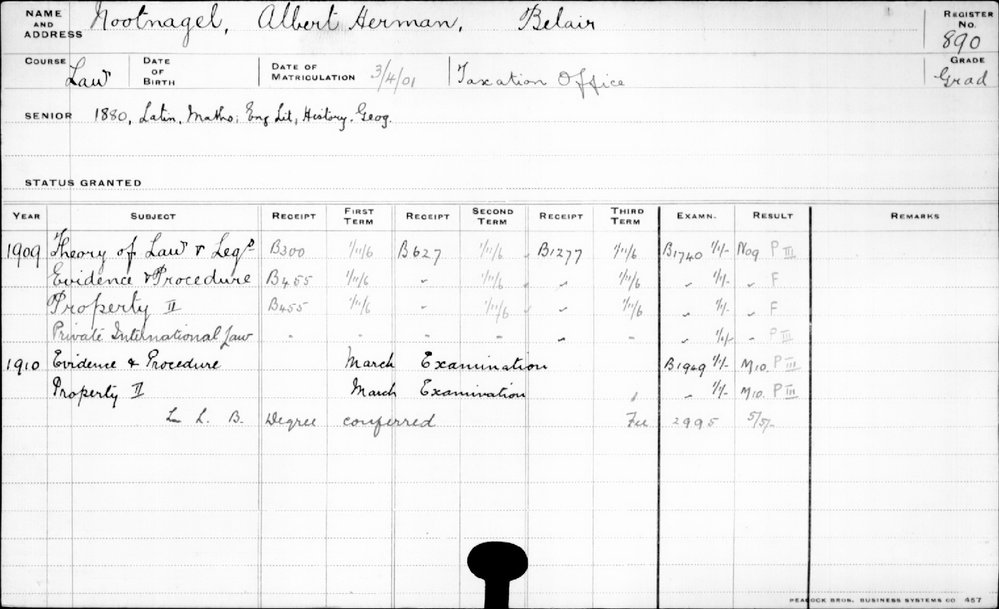 NAME AND ADDRESS Nootnagel, Albert Herman, Belair REGISTER No. 890
COURSE Law DATE OF BIRTH DATE OF MATRICULATION 3/4/01 Taxation Office GRADE Grad
SENIOR 1880, Latin, Maths; Eng Lit, History. Geog.
STATUS GRANTED
YEAR SUBJECT RECEIPT FIRST TERM RECEIPT SECOND TERM RECEIPT THIRD TERM EXAMN. RESULT REMARKS
1909 Theory of Law & Legn B300 1/11/6 B627 1/11/6 B1277 1/11/6 B1740 1/1/- No9 P III
Evidence & Procedure B455 1/11/6 " 1/11/6 " 1/11/6 " 1/1/- " F
Property II B455 1/11/6 " 1/11/6 " 1/11/6 " 1/1/- " F
Private International Law - - - - " - " 1/1/- " P III
1910 Evidence & Procedure March Examination B1949 1/1/- M10. P III
Property II March Examination " 1/1/- M10. P III
L. L. B. Degree conferred Fee 2995 5/5/-
PEACOCK BROS. BUSINESS SYSTEMS CO 457